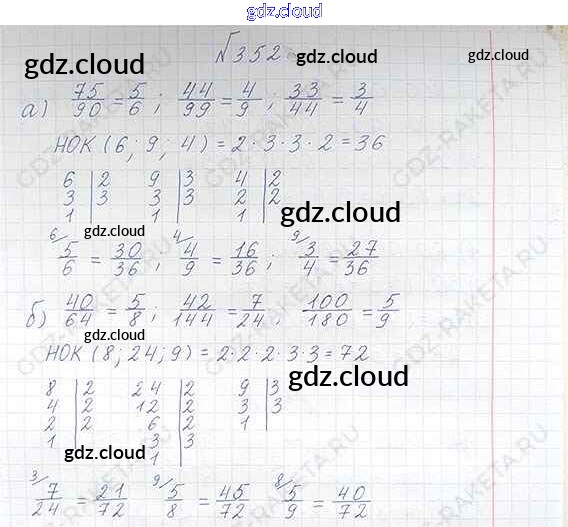 gdz.cloud
№352
gdz.cloud gdz.cloud
а) 75/90 = 5/6; 44/99 = 4/9; 33/44 = 3/4
НОК (6; 9; 4) = 2·3·3·2 = 36
6 | 2 9 | 3 4 | 2
3 | 3 3 | 3 2 | 2
1 | 1 | 1 |
gdz.cloud
gdz.cloud
6/ 5/6 = 30/36; 4/ 4/9 = 16/36; 9/ 3/4 = 27/36
б) 40/64 = 5/8; 42/144 = 7/24 100/180 = 5/9
НОК (8; 24; 9) = 2·2·2·3·3 = 72
gdz.cloud
8 | 2 24 | 2 9 | 3
4 | 2 12 | 2 3 | 3
2 | 2 6 | 2 1 |
1 | 3 | 3
1 |
gdz.cloud
3/ 7/24 = 21/72 9/ 5/8 = 45/72 8/ 5/9 = 40/72
gdz.cloud
GDZ-RAKETA.RU